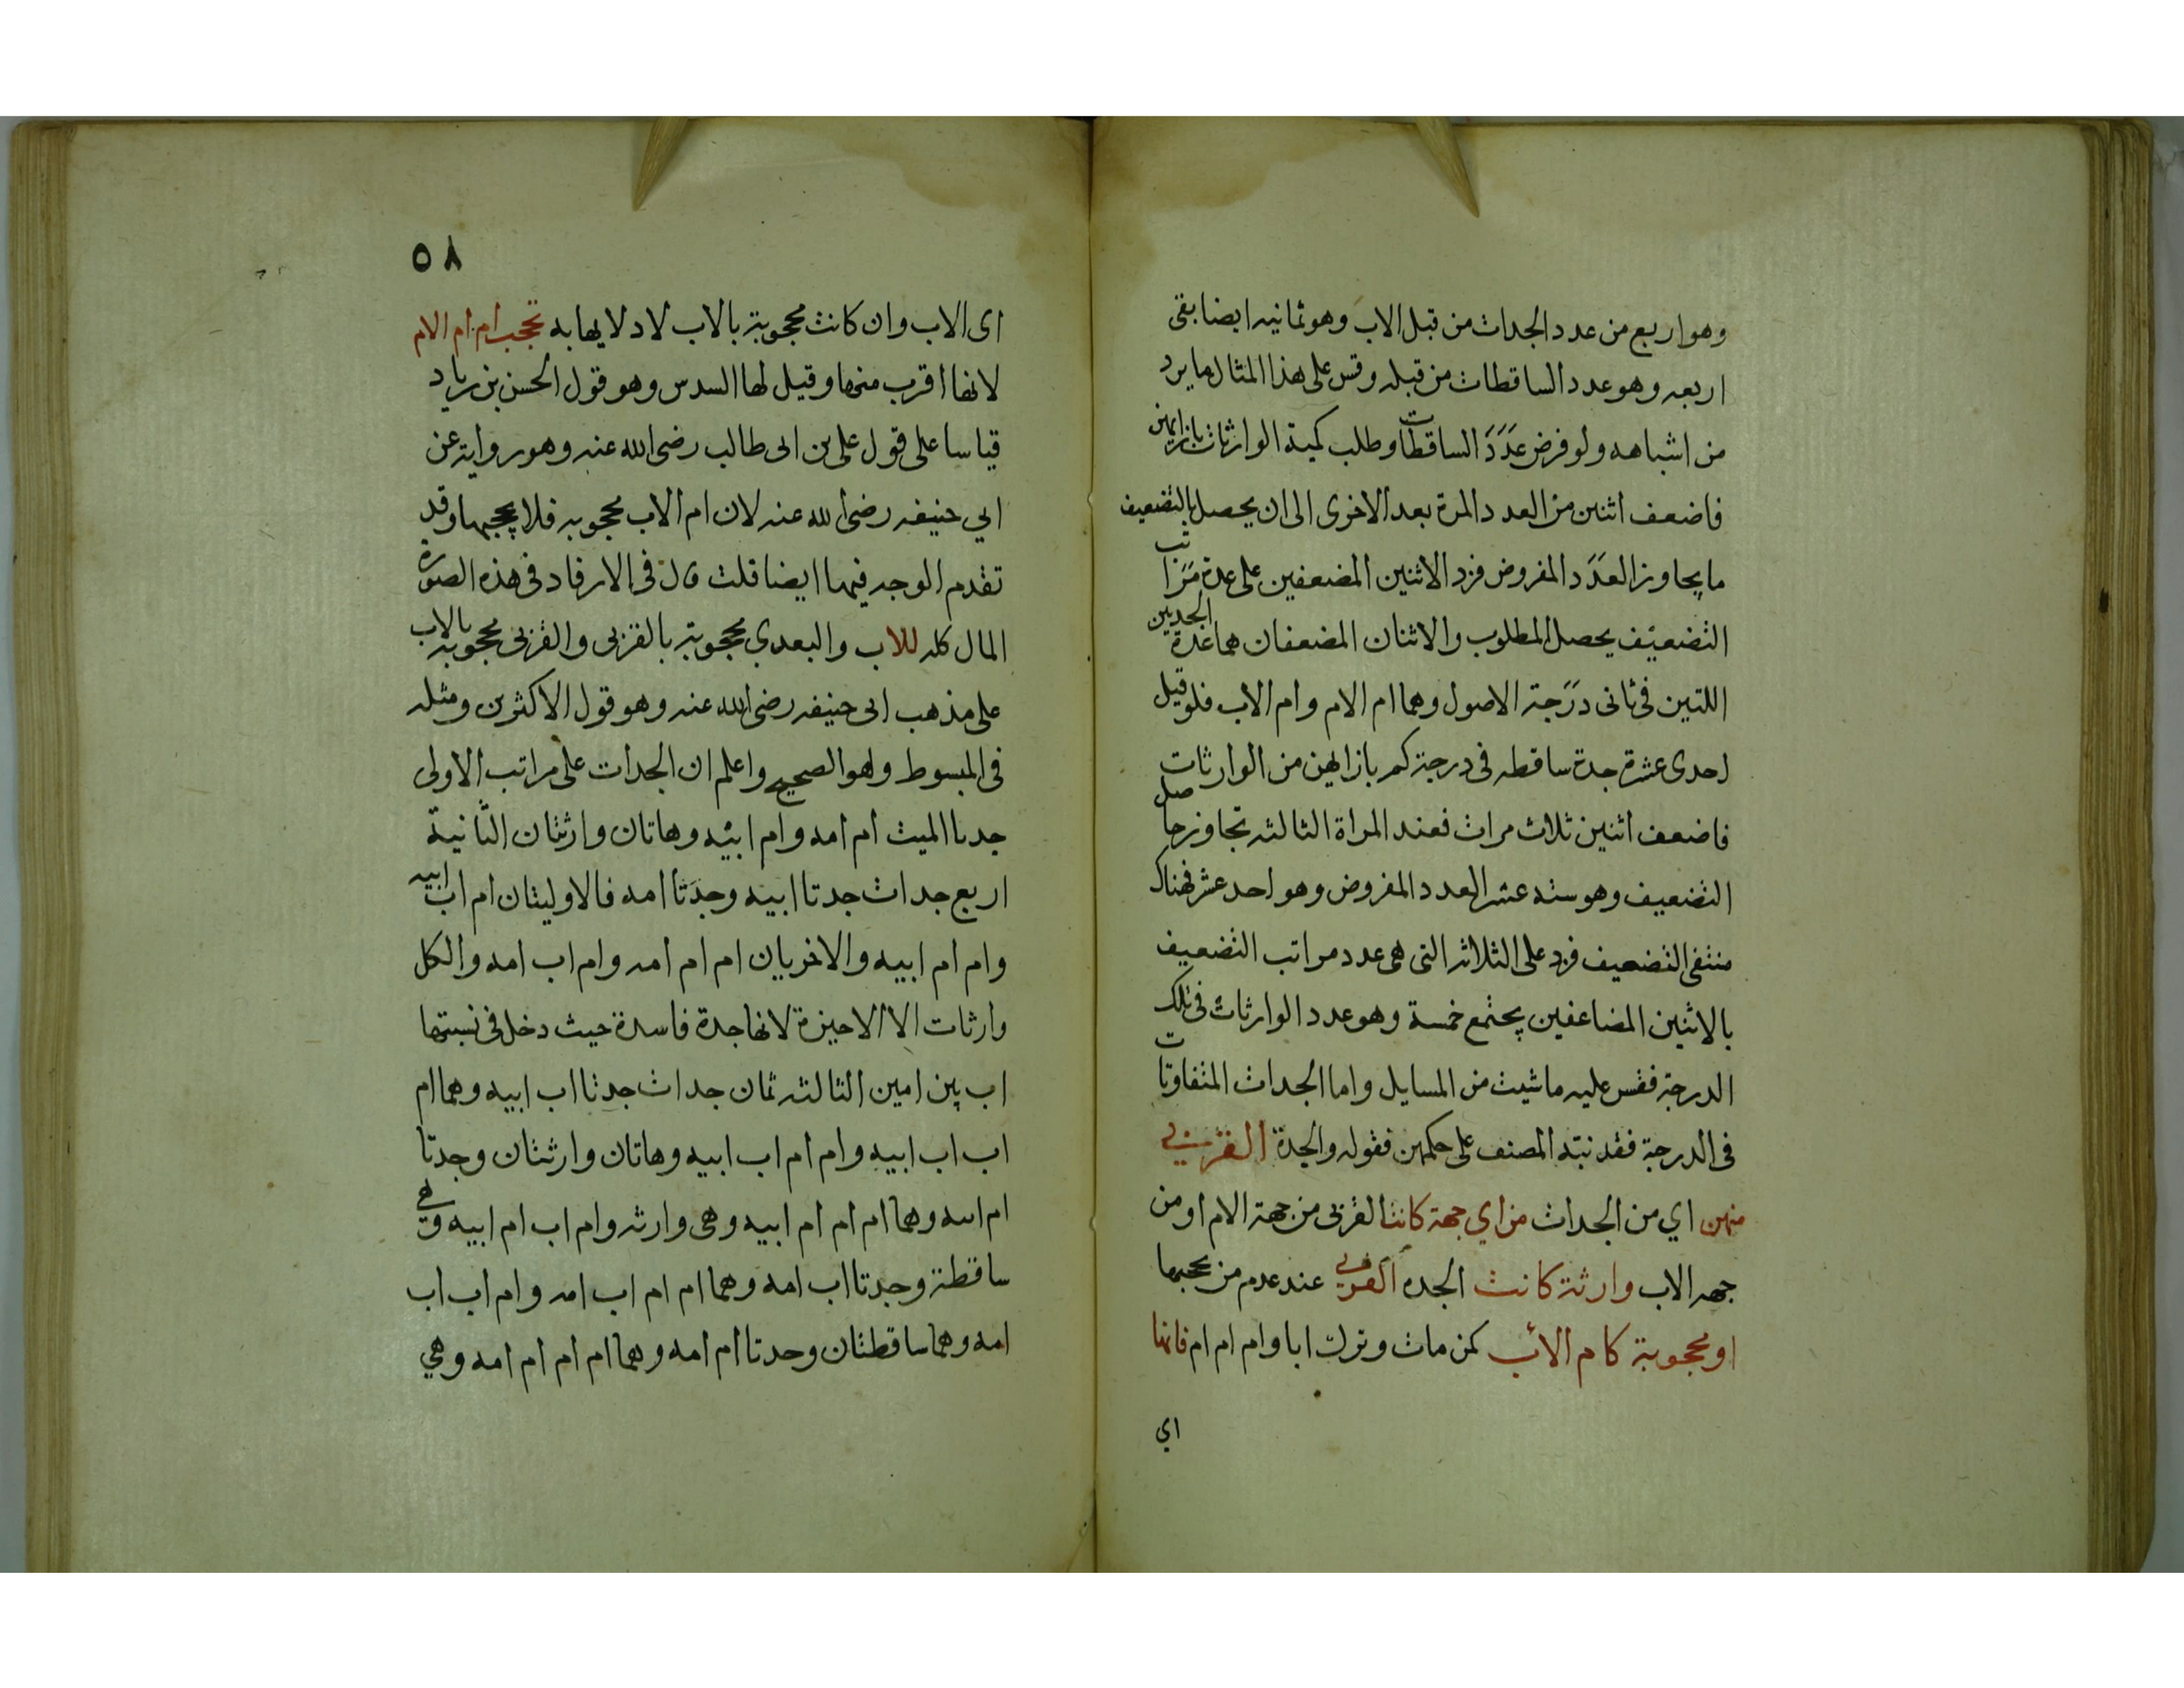 وهو اربع من عدد الجداث من قبل الاب وهو ثمانيه ايضا بقى
اربعه وهو عدد الساقطات من قبله وقس على هذا المثال ما يرد
من اشباهه ولو فرض عدد الساقطات وطلب كمية الوارثات بازايهن
فاضعف اثنين من العدد المرة بعد الاخرى الى ان يحصل بالتضعيف
ما يجاوز العدد المفروض فزد الاثنين المضعفين على عدة مراتب
التضعيف يحصل المطلوب والاثنان المضعفان هما عدة الجدتين
اللتين فى ثانى درجة الاصول وهما ام الام وام الاب فلو قيل
احدى عشرة جدة ساقطه فى درجة كم بازايهن من الوارثات
فاضعف اثنين ثلاث مرات فعند المراة الثالثه تجاوز حاصل
التضعيف وهو سته عشر العدد المفروض وهو احد عشر فهناك
منتهى التضعيف فزد على الثلاثه التى هى عدد مراتب التضعيف
بالاثنين المضاعفين يجتمع خمسة وهو عدد الوارثات فى تلك
الدرجة فقس عليه ما شيت من المسايل واما الجداث المتفاوتات
فى الدرجة فقد نبّه المصنف على حكمهن فقوله والجدة القربى
منهن اي من الجداث من اي جهة كانت القربى من جهة الام او من
جهه الاب وارثة كانت الجده القربى عند عدم من يحجبها
او محجوبة كام الاب كمن مات وترك ابا وام ام ام فانها
اي
٥٨
اى الاب وان كانت محجوبة بالاب لادلايها به تحجب ام ام الام
لانها اقرب منها وقيل لها السدس وهو قول الحسن بن زياد
قياسا على قول على بن ابى طالب رضى الله عنه وهو رواية عن
ابي حنيفه رضى الله عنه لان ام الاب محجوبه فلا يحجبها وقد
تقدم الوجه فيها ايضا قلت قال فى الارفاد فى هذه الصورة
المال كله للاب والبعدي محجوبة بالقربى والقربى محجوبة بالاب
على مذهب ابى حنيفه رضى الله عنه وهو قول الاكثرين ومثله
فى المبسوط وهو الصحيح واعلم ان الجدات على مراتب الاولى
جدتا الميت ام امه وام ابيه وهاتان وارثتان الثانية
اربع جداث جدتا ابيه وجدتا امه فالاوليتان ام اب ابيه
وام ام ابيه والاخريان ام ام امه وام اب امه والكل
وارثات الا الاخيرة لانها جدة فاسدة حيث دخل فى نسبتها
اب بين امين الثالثه ثمان جداث جدتا اب ابيه وهما ام
اب اب ابيه وام ام اب ابيه وهاتان وارثتان وجدتا
ام ابيه وهما ام ام ام ابيه وهى وارثه وام اب ام ابيه وهي
ساقطة وجدتا اب امه وهما ام ام اب امه وام اب اب
امه وهما ساقطتان وجدتا ام امه وهما ام ام ام امه وهي